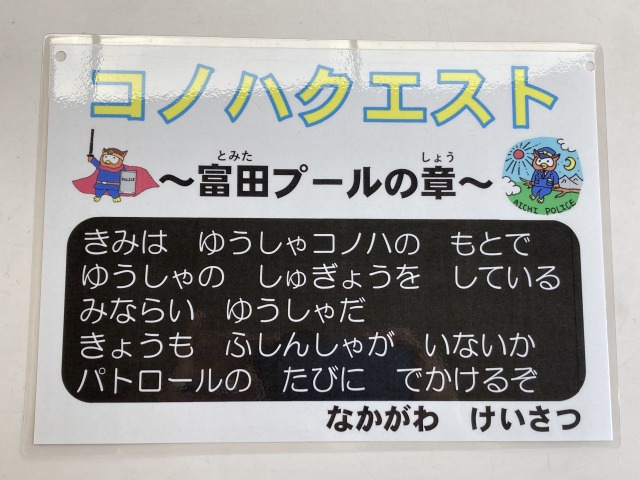 コノハクエスト
とみた しょう
～富田プールの章～
POLICE
AICHI POLICE
きみは ゆうしゃコノハの もとで
ゆうしゃの しゅぎょうを している
みならい ゆうしゃだ
きょうも ふしんしゃが いないか
パトロールの たびに でかけるぞ
なかがわ けいさつ